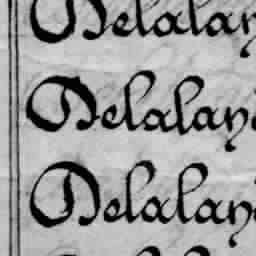 Delalay
Delalay
Delalay